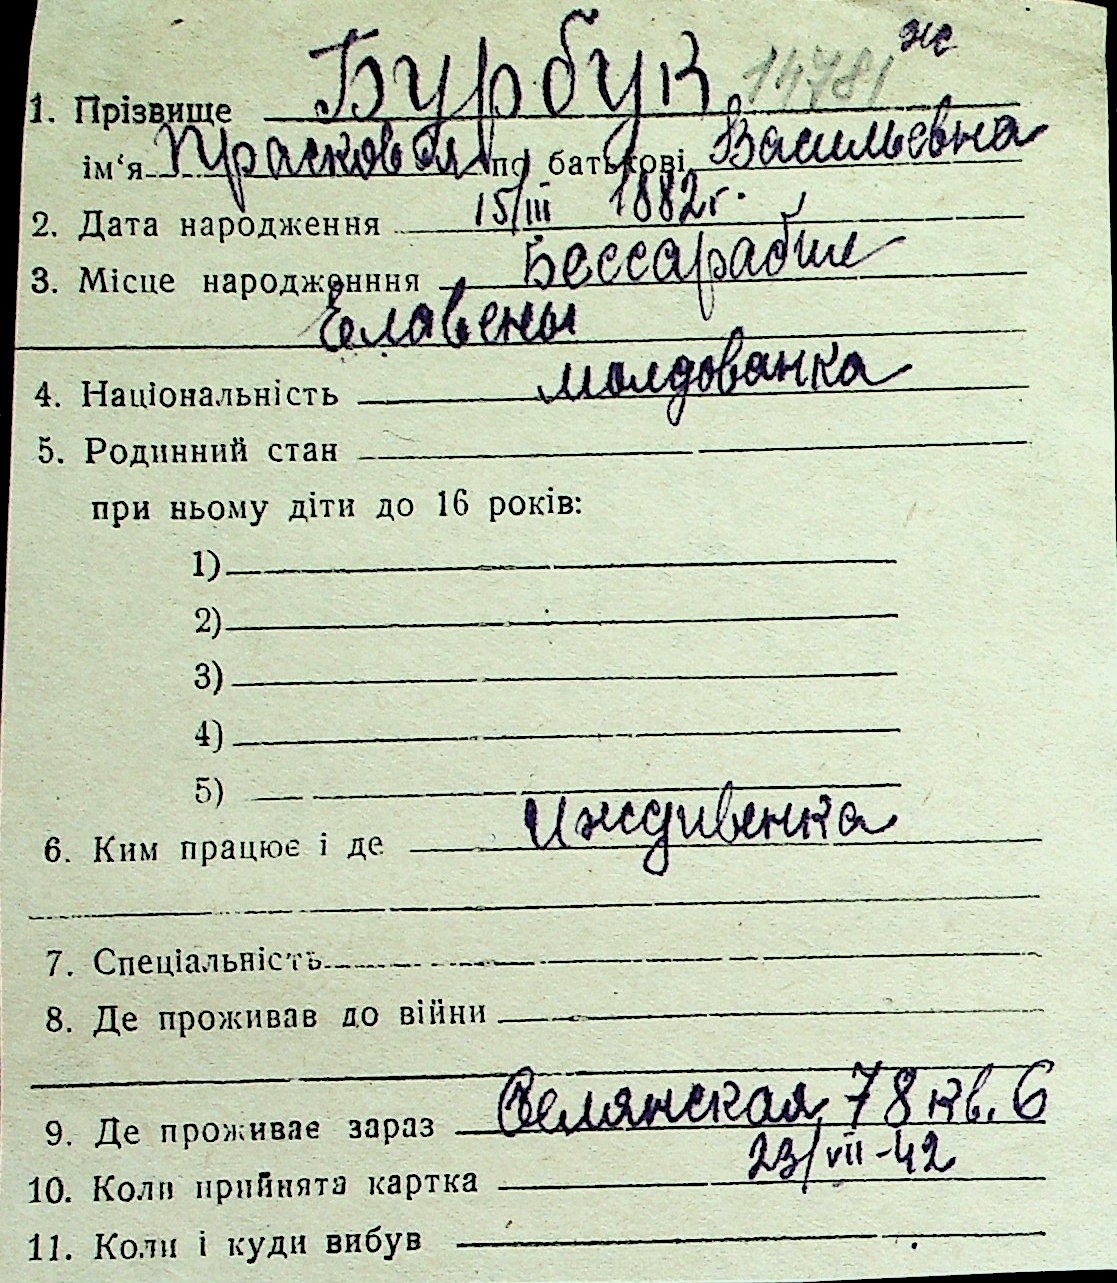 ж
1. Прізвище Бурбук 14781
ім'я Прасковья по батькові Васильевна
2. Дата народження 15/III 1882 г.
3. Місце народженння Бессарабии
Елавены
4. Національність молдованка
5. Родинний стан
при ньому діти до 16 років:
1)
2)
3)
4)
5)
6. Ким працює і де Иждивенка
7. Спеціальність
8. Де проживав до війни
9. Де проживає зараз 78 кв. 6
10. Коли прийнята картка 23/VII-42
11. Коли і куди вибув